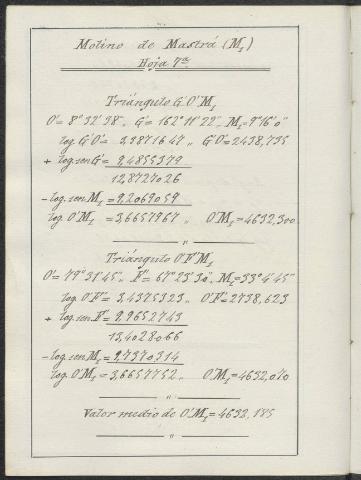 Molino de Mastrá (M₁)
Hoja 7ª
Triángulo G'O'M₁
O'= 8°32'38" „ G'= 162°11'22" „ M₁= 9°16'0"
log. G'O' = 3,3871647 „ G'O'= 2438,735
+ log. sen G' = 9,4855379
12,8727026
- log. sen M₁ = 9,2069059
log. O'M₁ = 3,6657967 „ O'M₁ = 4632,300
„
Triángulo O'F'M₁
O'= 79°31'45" „ F'= 67°23'30" „ M₁= 33°4'45"
log. O'F' = 3,4375323 „ O'F'= 2738,623
+ log. sen F' = 9,9652743
13,4028066
- log. sen M₁ = 9,7370314
log. O'M₁ = 3,6657752 „ O'M₁ = 4632,070
„
Valor medio de O'M₁ = 4632,185
„